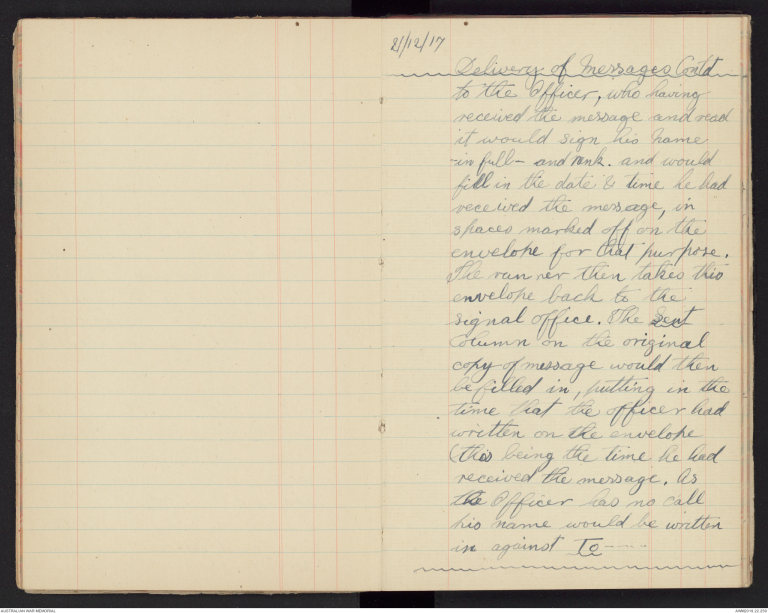 2/12/17
Delivery of Messages Contd
to the Officer, who having
received the message and read
it would sign his name
in full - and rank. and would
fill in the date & time he had
received the message, in
spaces marked off on the
envelope for that purpose.
The runner then takes this
envelope back to the
signal office. The Sent
Column on the original
copy of message would then
be filled in, putting in the
time that the officer had
written on the envelope
(this being the time he had
received the message. As
the Officer has no call
his name would be written
in against To ----
AUSTRALIAN WAR MEMORIAL